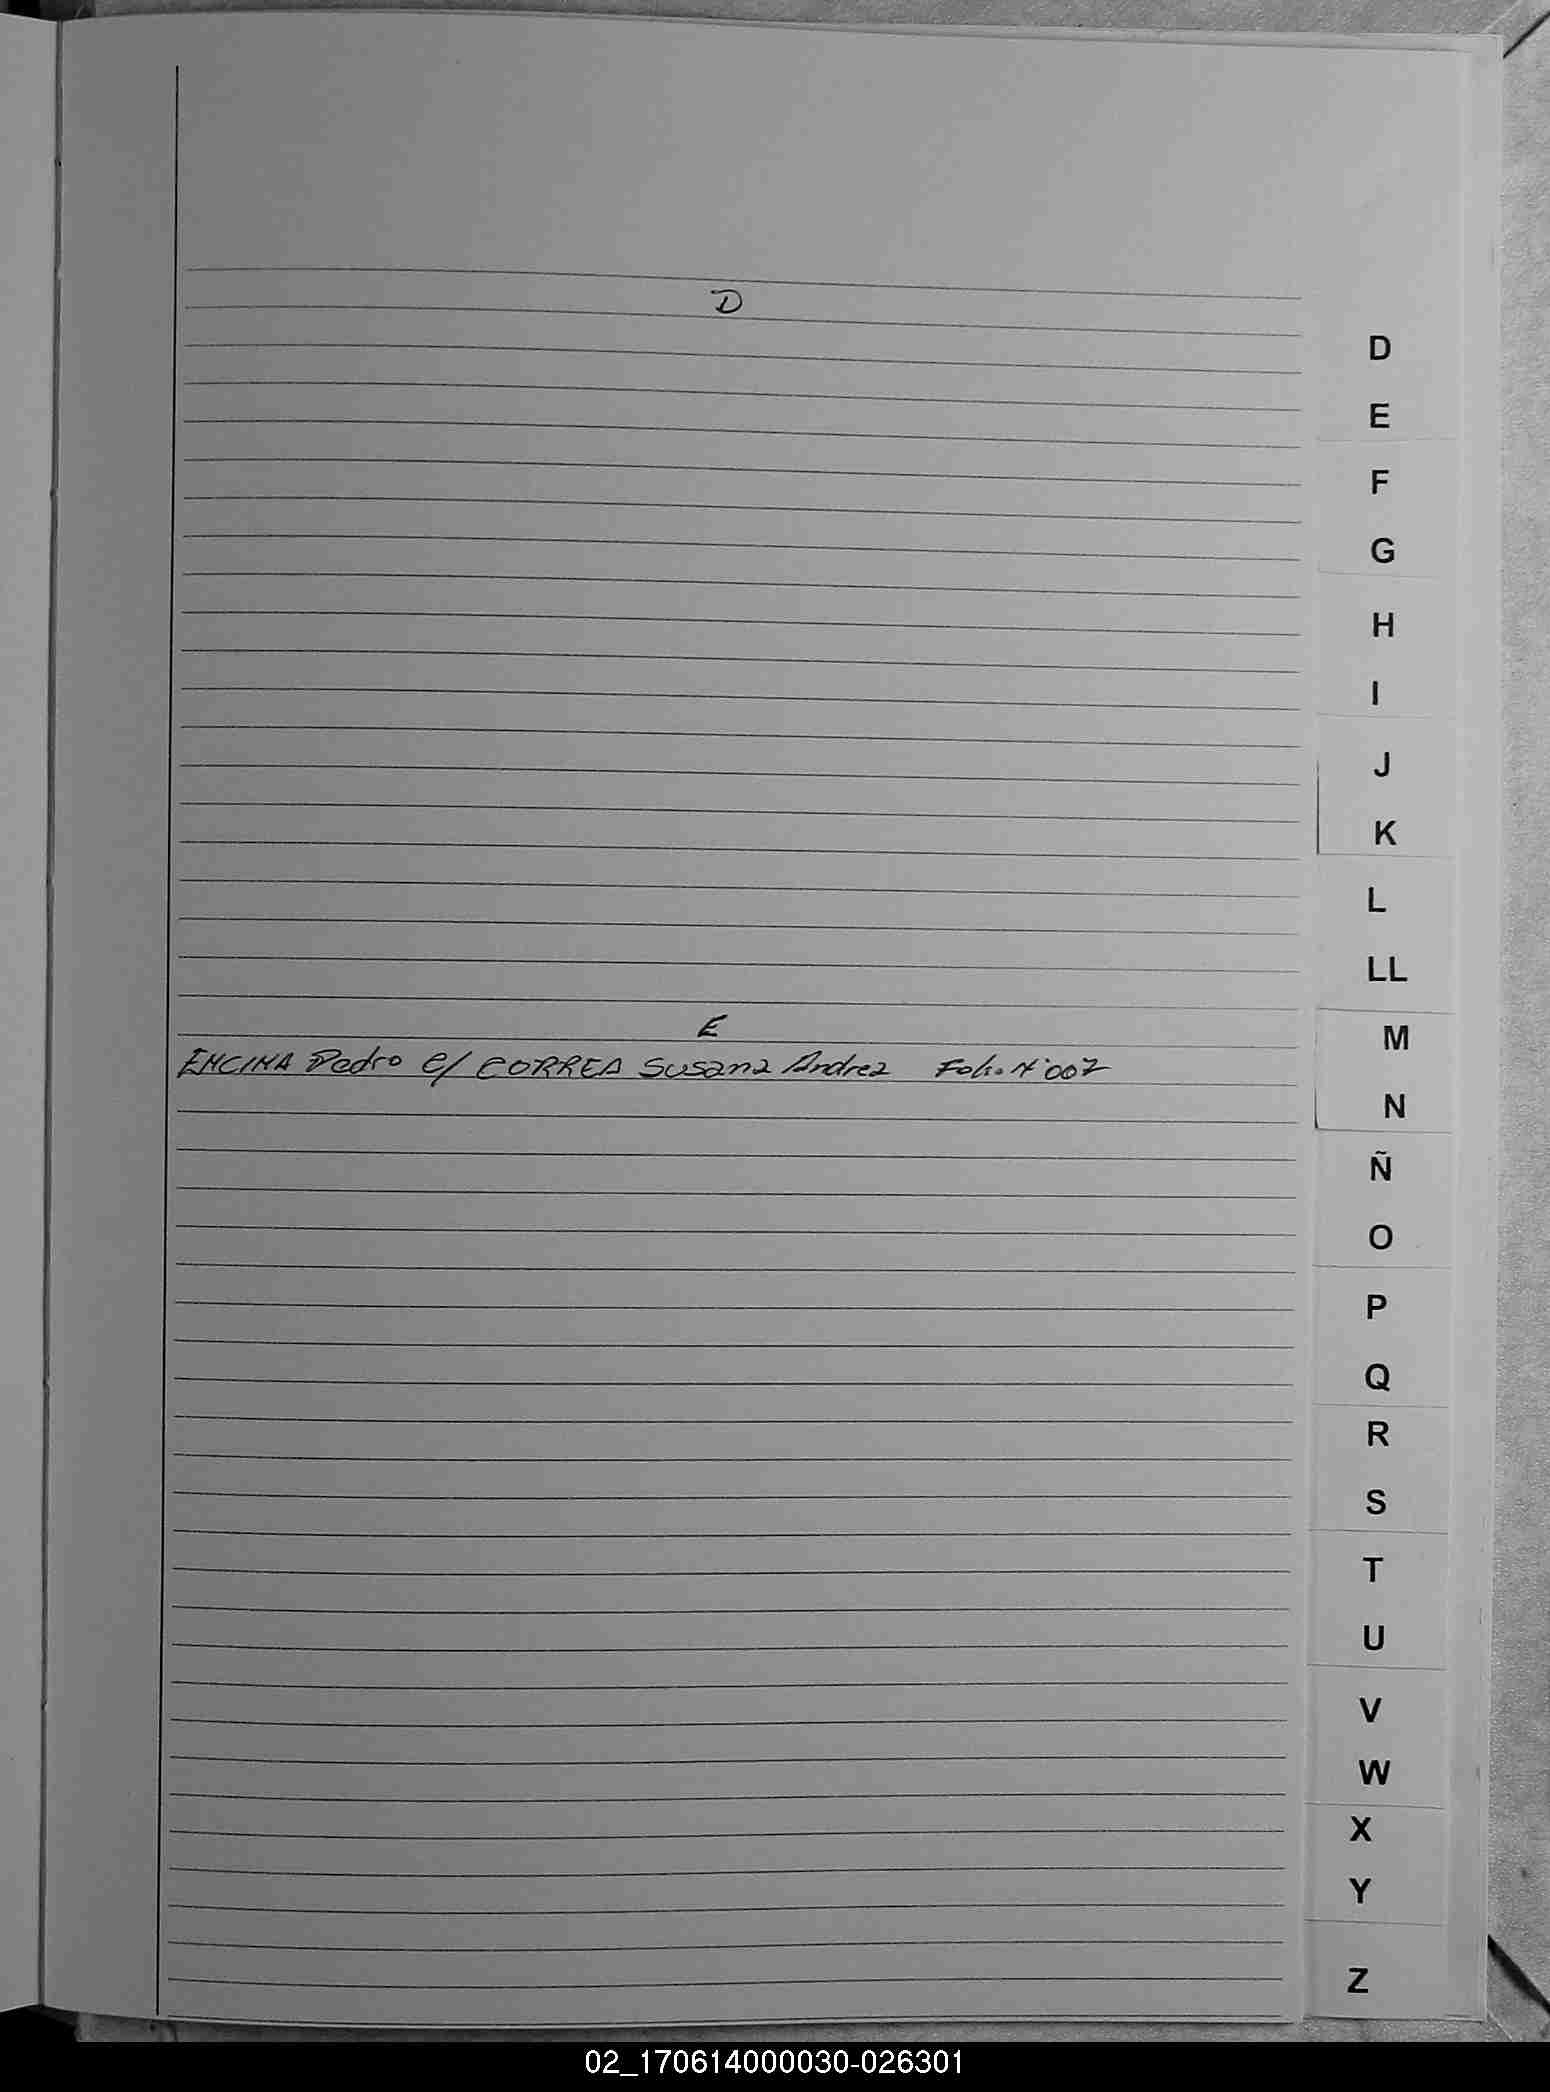 D
E
ENCINA Pedro c/ CORREA Susana Andrea Folio N° 007
D
E
F
G
H
I
J
K
L
LL
M
N
Ñ
O
P
Q
R
S
T
U
V
W
X
Y
Z
02_170614000030-026301